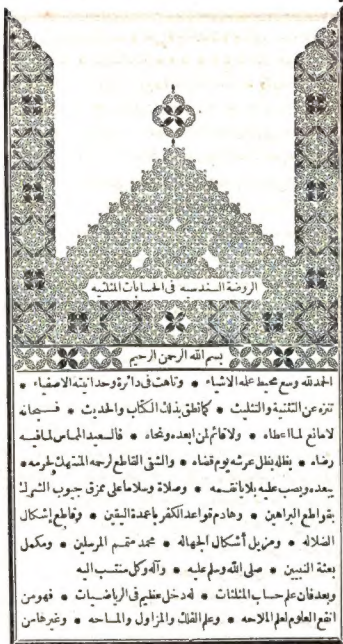 الروضة السندسيه فى الحسابات المثلثيه
بسم الله الرحمن الرحيم
الحمدلله وسع محيط علمه الاشياء * وتاهت فى دائرة وحدانيته الاصفياء *
تنزه عن التثنية والتثليث * كما نطق بذلك الكتاب والحديث * فسبحانه
لامانع لما اعطاه * ولاقائم لمن ابعده ونحاه * فالسعيد الماس لما فيه
رضاه * يظله بظل عرشه يوم قضاه * والشقى القاطع لرحمه المنتهك لحرمه *
يبعده ويصب عليه بلايا نقمه * وصلاة وسلاما على ممزق جيوب الشرك
بقواطع البراهين * وهادم قواعد الكفر باعمدة اليقين * وقاطع اشكال
الضلاله * ومزيل أشكال الجهاله * محمد متمم المرسلين * ومكمل
بعثة النبيين * صلى الله وسلم عليه * وآله وكل منتسب اليه
وبعد فان علم حساب المثلثات * له دخل عظيم فى الرياضيات * فهو من
انفع العلوم لعلم الملاحه * وعلم الفلك والمزاول والمساحه * وغيرها من